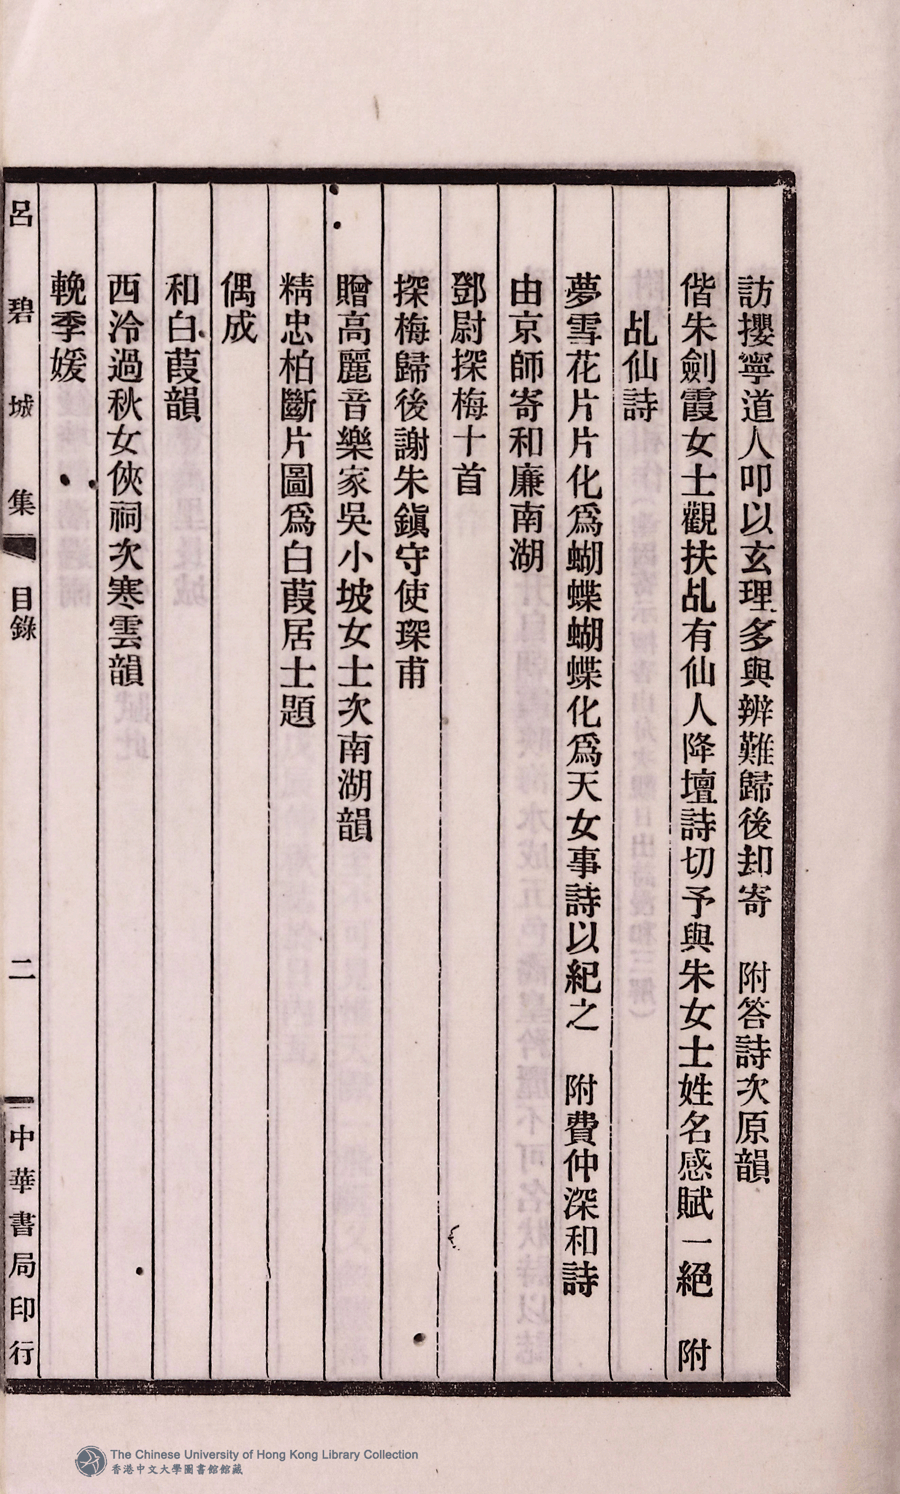 訪攖寧道人叩以玄理多與辨難歸後却寄　附答詩次原韻
偕朱劍霞女士觀扶乩有仙人降壇詩切予與朱女士姓名感賦一絕　附
乩仙詩
夢雪花片片化爲蝴蝶蝴蝶化爲天女事詩以紀之　附費仲深和詩
由京師寄和廉南湖
鄧尉探梅十首
探梅歸後謝朱鎭守使琛甫
贈高麗音樂家吳小坡女士次南湖韻
精忠柏斷片圖爲白葭居士題
偶成
和白葭韻
西泠過秋女俠祠次寒雲韻
輓季媛
呂碧城集　目錄　二　中華書局印行
The Chinese University of Hong Kong Library Collection
香港中文大學圖書館館藏